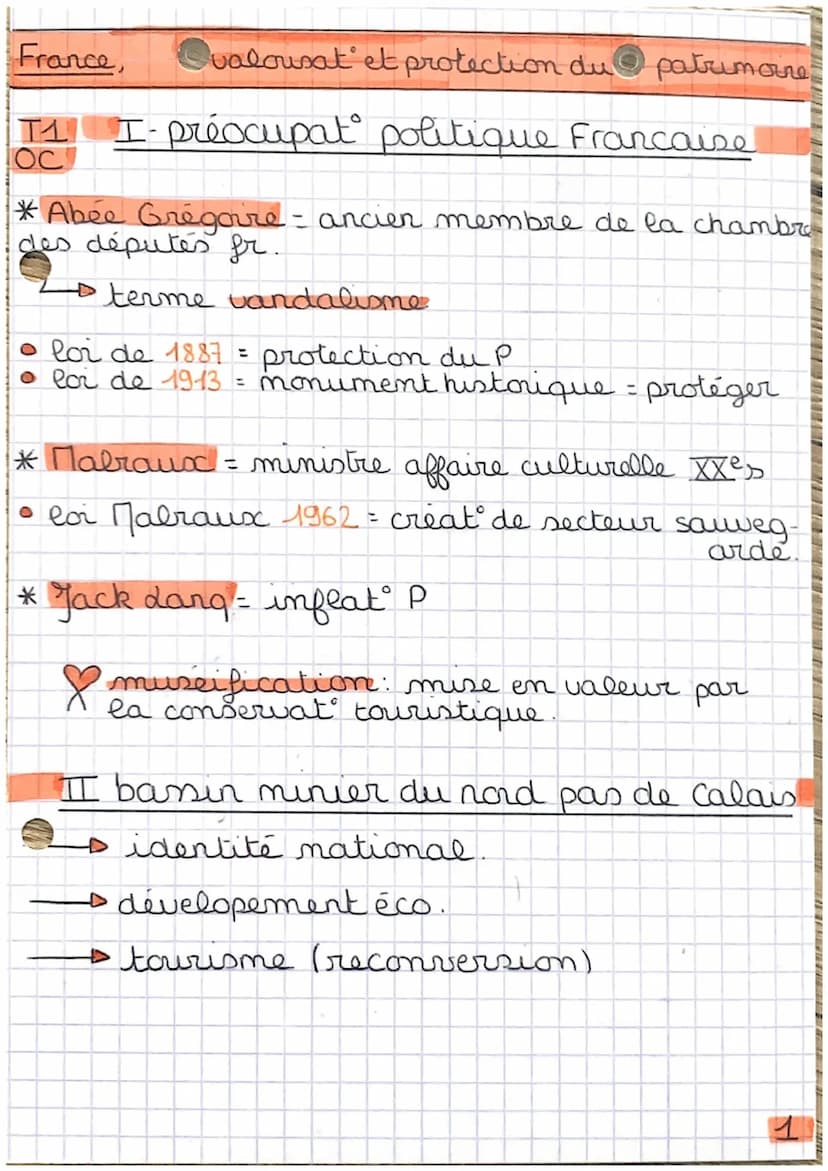 France, valorisat° et protection du patrimoine
T1 I- préocupat° politique Francaise
OC
* Abée Grégoire = ancien membre de la chambre
des députés fr.
terme vandalisme
• loi de 1887 = protection du P
• loi de 1913 = monument historique = protéger
* Malraux = ministre affaire culturelle XXes
• loi Malraux 1962 = créat° de secteur sauveg-
arde.
* Jack Lang = inflat° P
muséification : mise en valeur par
la conservat° touristique.
II bassin minier du nord pas de Calais
→ identité national.
→ dévelopement éco.
→ tourisme (reconversion)
1